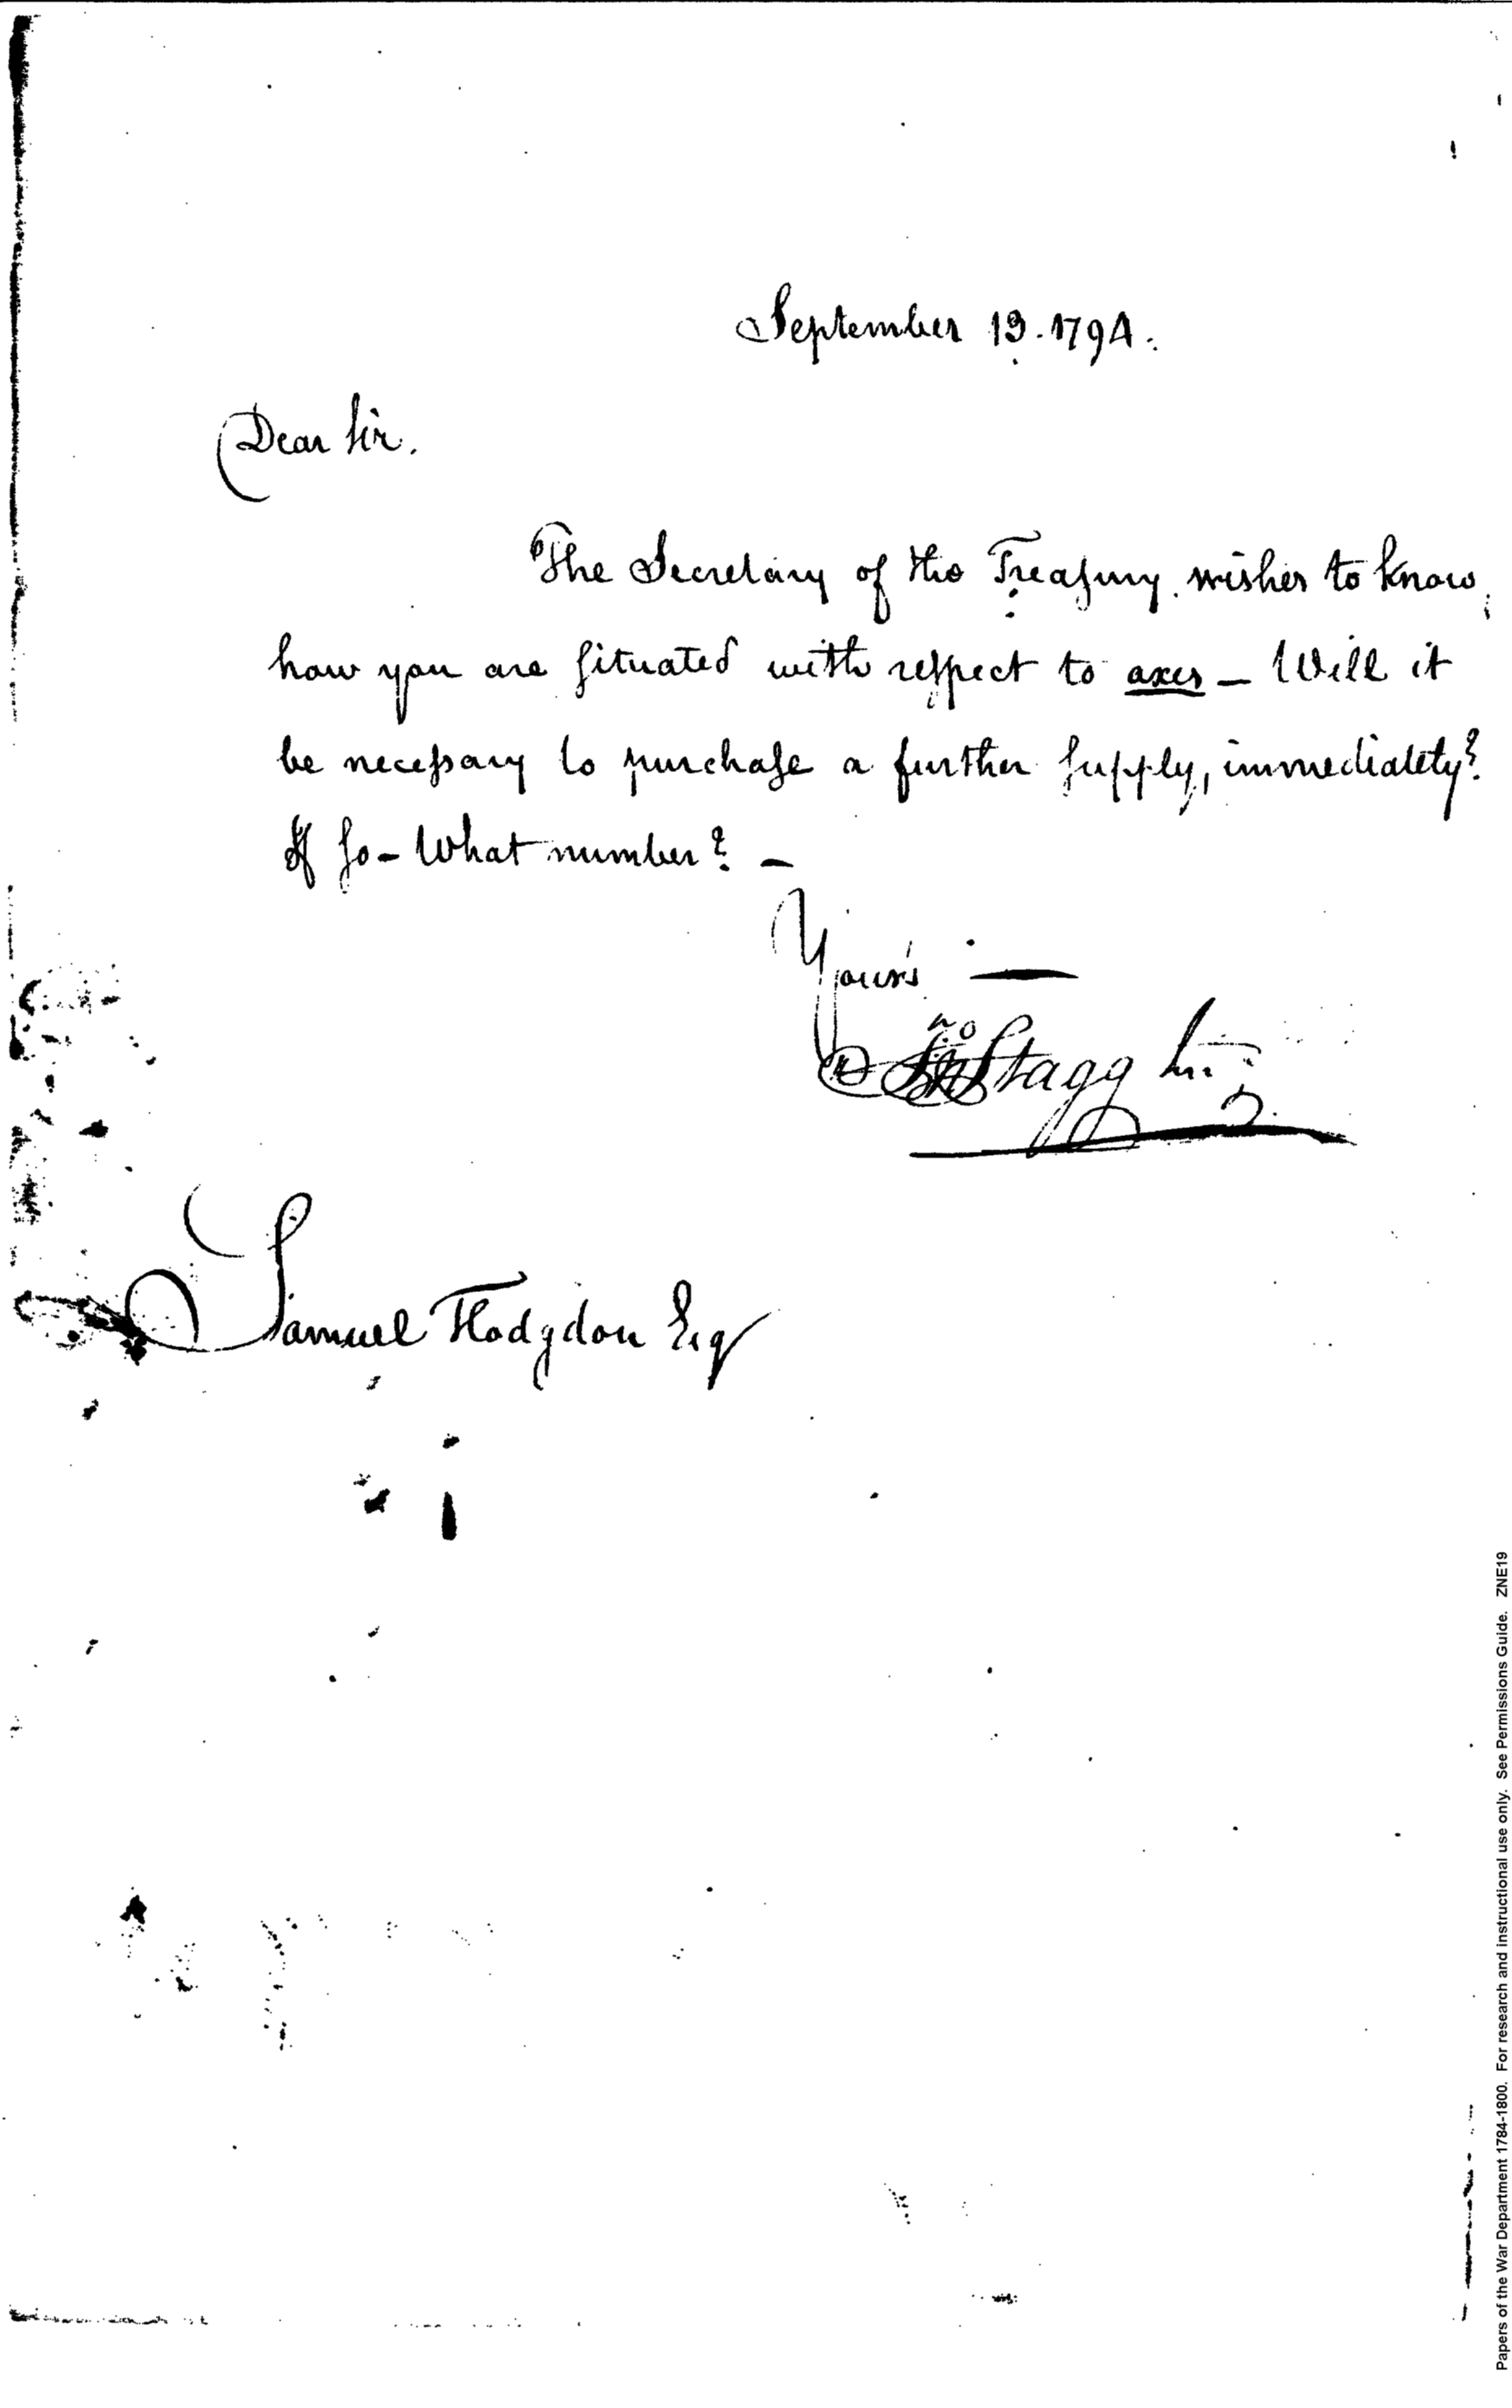 September 13. 1794.
Dear Sir.
The Secretary of the Treasury wishes to know,
how you are situated with respect to axes — Will it
be necessary to purchase a further supply, immediately?
If so – What number? —
Your's —
Jno Stagg Jnr
Samuel Hodgdon Esq
Papers of the War Department 1784-1800. For research and instructional use only. See Permissions Guide. ZNE19